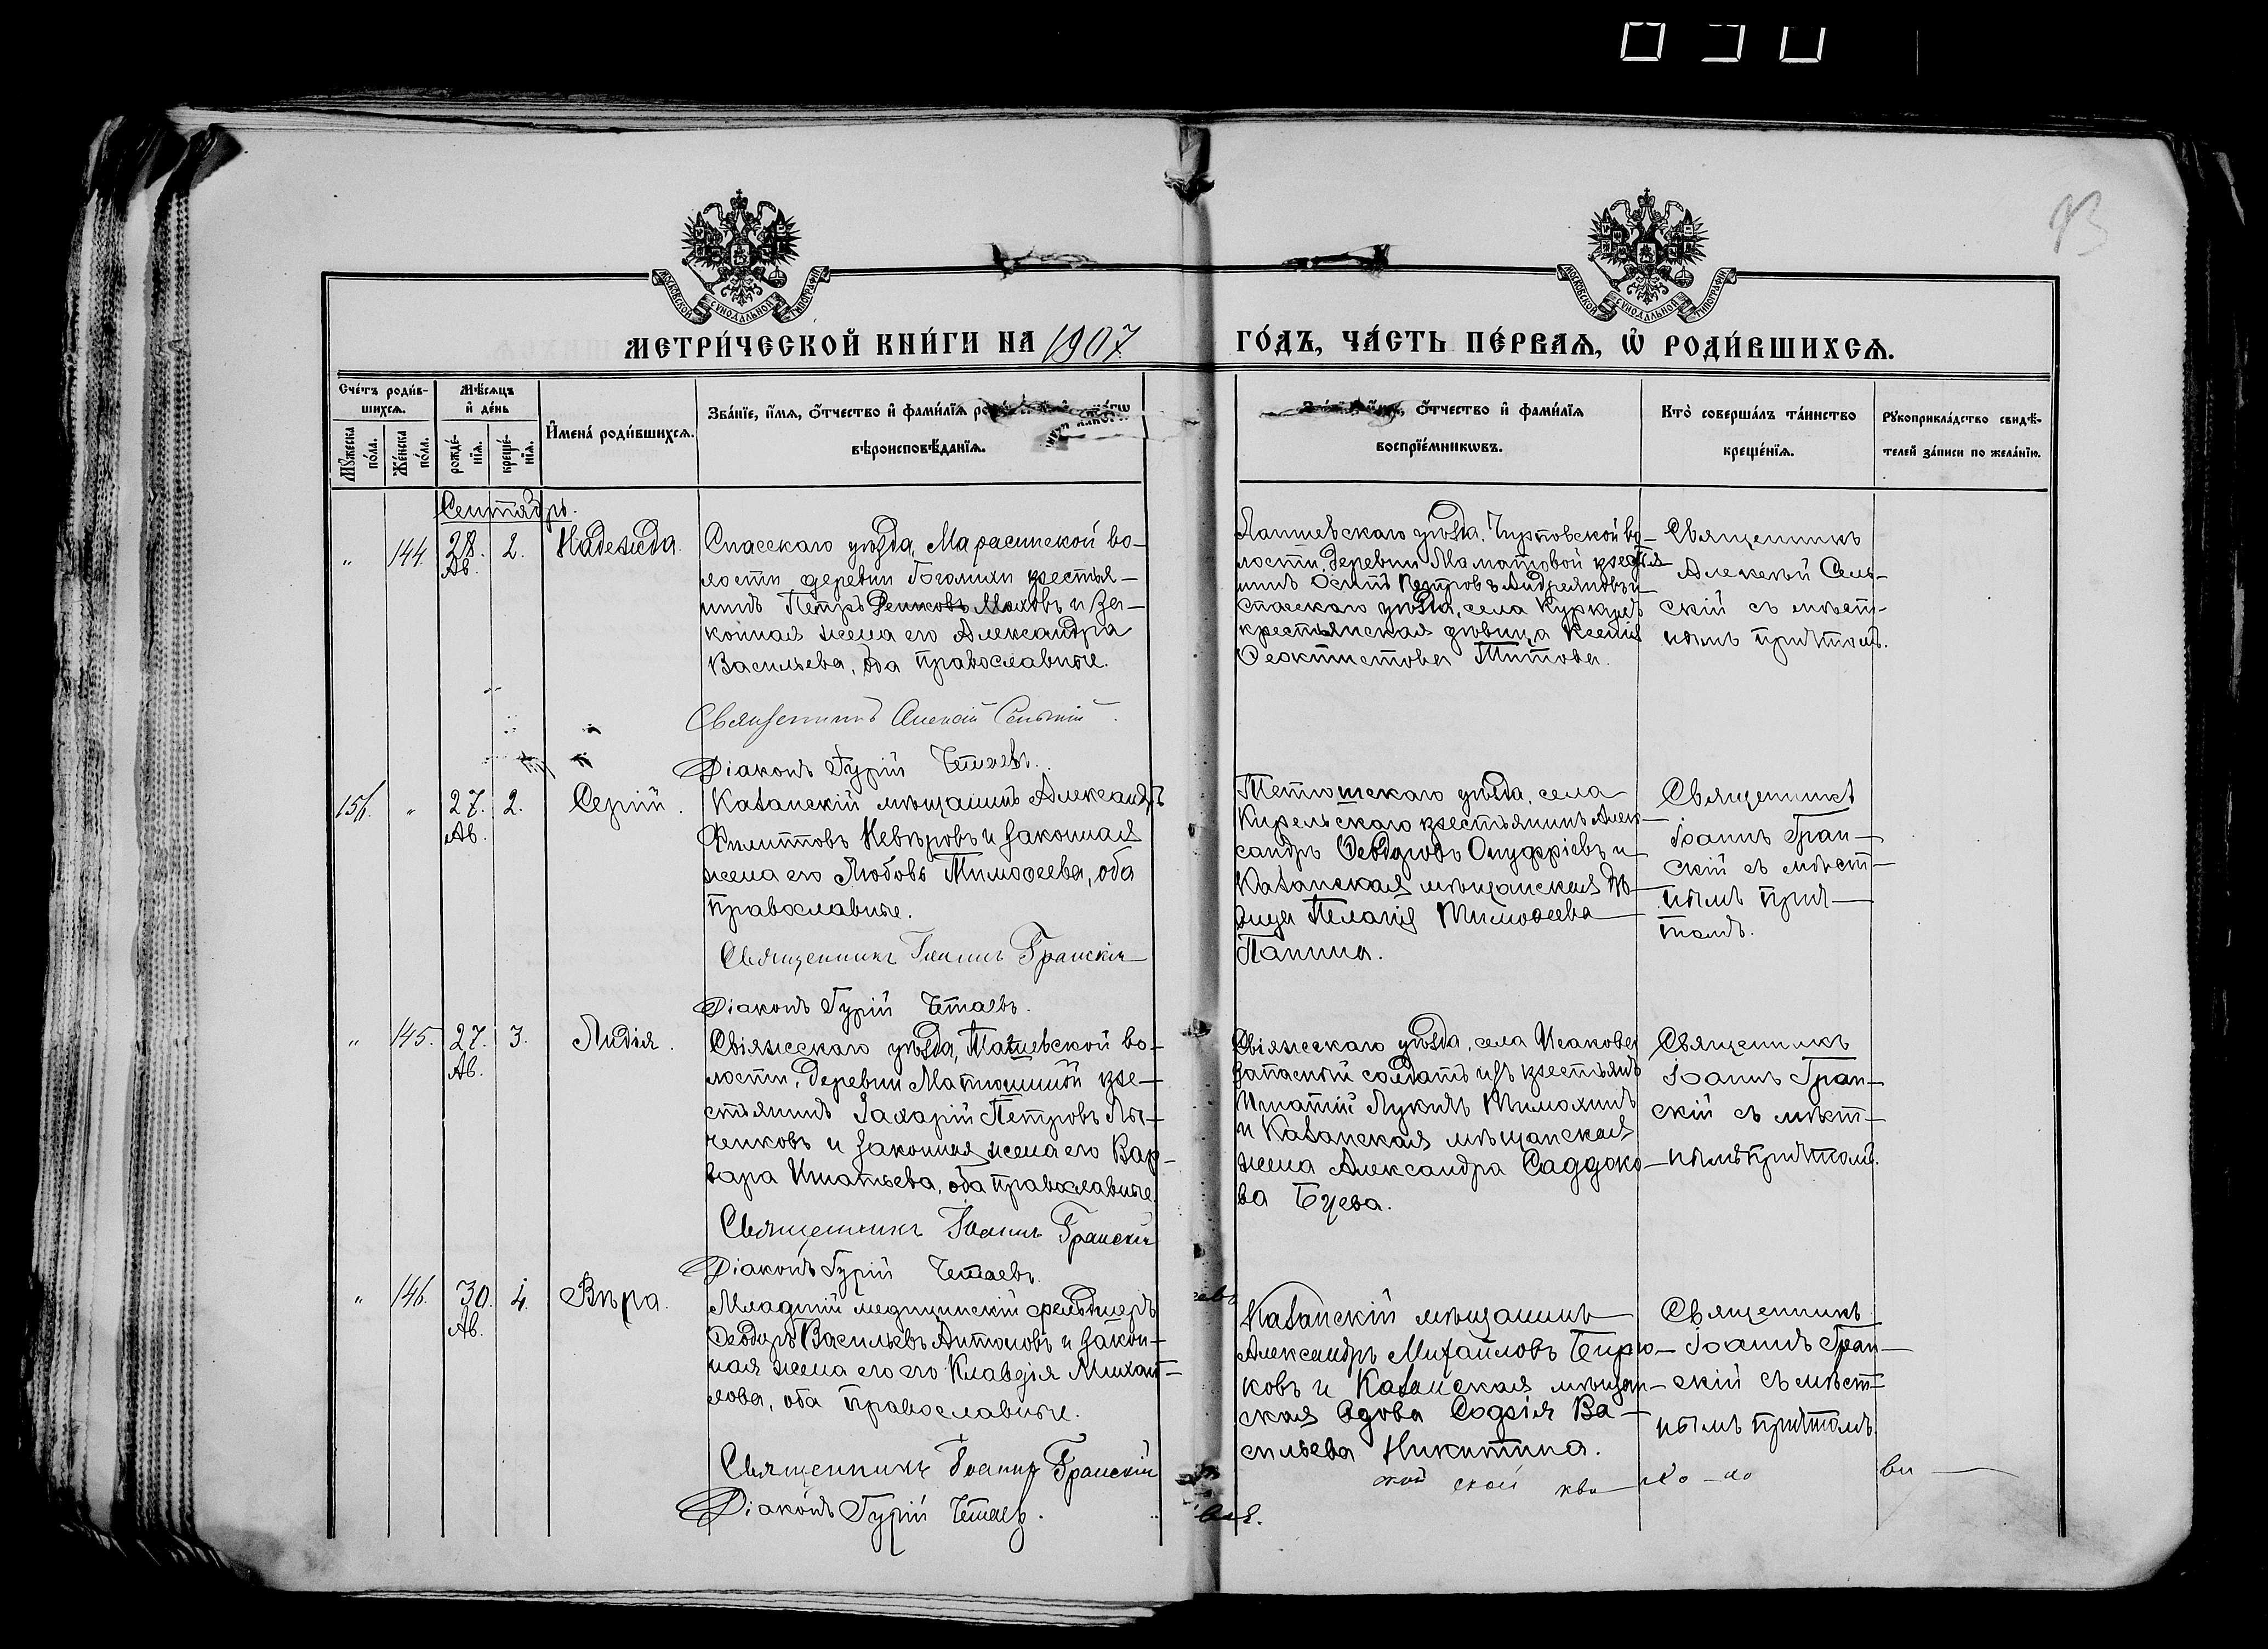 МОСКОВСКОЙ СУНОДАЛЬНОЙ ТИПОГРАФІИ
МОСКОВСКОЙ СУНОДАЛЬНОЙ ТИПОГРАФІИ
МЕТРИ́ЧЕСКОЙ КНИ́ГИ НА 1907
ГО́ДЪ, ЧА́СТЬ ПЕ́РВАѦ, Ѡ҆ РОДИ́ВШИХСѦ.
Сче́тъ роди́в-
шихсѧ.
Мѣ́сѧцъ
и҆ де́нь
Му́жеска
по́ла.
Же́нска
по́ла.
рожде́-
нїѧ.
креще́-
нїѧ.
И҆мена̀ роди́вшихсѧ.
Зва́нїе, и҆́мѧ, ѻ҆́тчество и҆ фами́лїѧ
вѣроисповѣ́данїѧ.
ѻ҆́тчество и҆ фами́лїѧ
воспрїе́мникѡвъ.
Кто̀ соверша́лъ та́инство
креще́нїѧ.
Рꙋкоприкла́дство свидѣ́-
телей за́писи по жела́нїю.
Сентябрь.
" 144. 28. Ав. 2. Надежда.
Спасскаго уѣзда, Марасинской во-
лости, деревни Гоголихи крестья-
нинъ Петръ Моховъ и за-
конная жена его Александра
Васильева, оба православные.
Священникъ Алексій Сельскій.
Діаконъ Гурій Четаевъ.
Лаишевскаго уѣзда, Чирповской во-
лости, деревни Маматовой крестья
нинъ Осипъ Петровъ Андреяновъ и
Спасскаго уѣзда, села
крестьянская дѣвица Ксенія
Ѳеоктистова Титова.
Священникъ
Алексѣй Сель-
скій съ мѣст-
нымъ причтомъ.
156. " 27. Ав. 2. Сергій.
Казанскій мѣщанинъ Александръ
Филипповъ Невѣровъ и законная
жена его Любовь Тимоѳеева, оба
православные.
Священникъ Іоаннъ Гранскій
Діаконъ Гурій Четаевъ.
Тетюшскаго уѣзда, села
Кирельскаго крестьянинъ Алек-
сандръ Ѳеодоровъ Онуфріевъ и
Казанская мѣщанская дѣ-
вица Пелагія Тимоѳеева
Папина.
Священникъ
Іоаннъ Гран-
скій съ мѣст-
нымъ прич-
томъ.
" 145. 27. Ав. 3. Лидія.
Свіяжскаго уѣзда, Ташевской во-
лости, деревни Матюшиной кре-
стьянинъ Захарій Петровъ Лы-
ченковъ и законная жена его Вар-
вара Игнатьева, оба православные.
Священникъ Іоаннъ Гранскій
Діаконъ Гурій Четаевъ.
Свіяжскаго уѣзда, села Исаково
запасный солдатъ изъ крестьянъ
Игнатій Лукинъ Тимохинъ
и Казанская мѣщанская
жена Александра Саддоко-
ва Буева.
Священникъ
Іоаннъ Гран-
скій съ мѣст-
нымъ причтомъ.
" 146. 30. Ав. 4. Вѣра.
Младшій медицинскій фельдшеръ
Ѳеодоръ Васильевъ Антоновъ и закон-
ная жена его его Клавдія Михай-
лова, оба православные.
Священникъ Іоаннъ Гранскій
Діаконъ Гурій Четаевъ.
Казанскій мѣщанинъ
Александръ Михайловъ Бирю-
ковъ и Казанская мѣщан-
ская вдова Софія Ва-
сильева Никитина.
Священникъ
Іоаннъ Гран-
скій съ мѣст-
нымъ причтомъ.